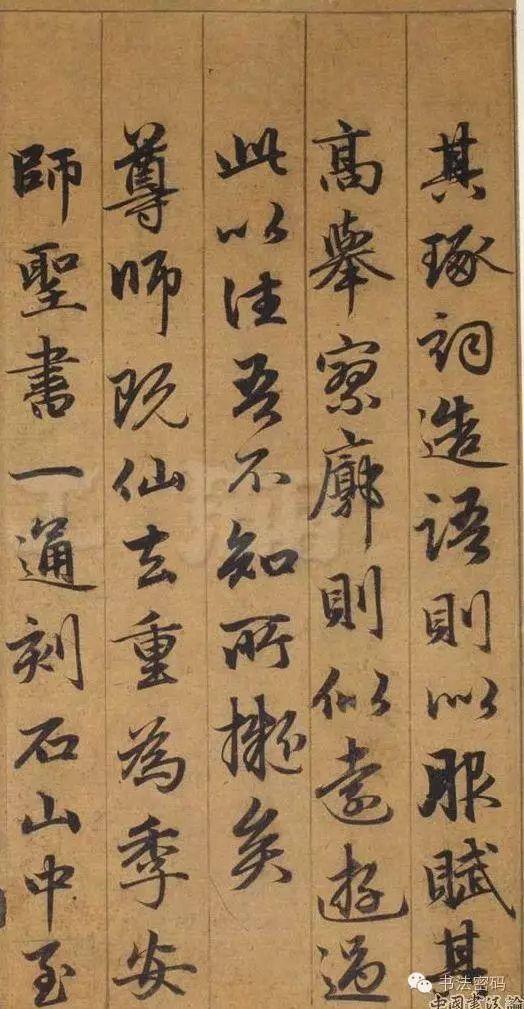 其琢词造語則似服賦其
高舉寥廓則似遠遊過
此以往吾不知所擬矣
尊師既仙去重為季安
師聖書一通刻石山中至
书法密码
中國書法論